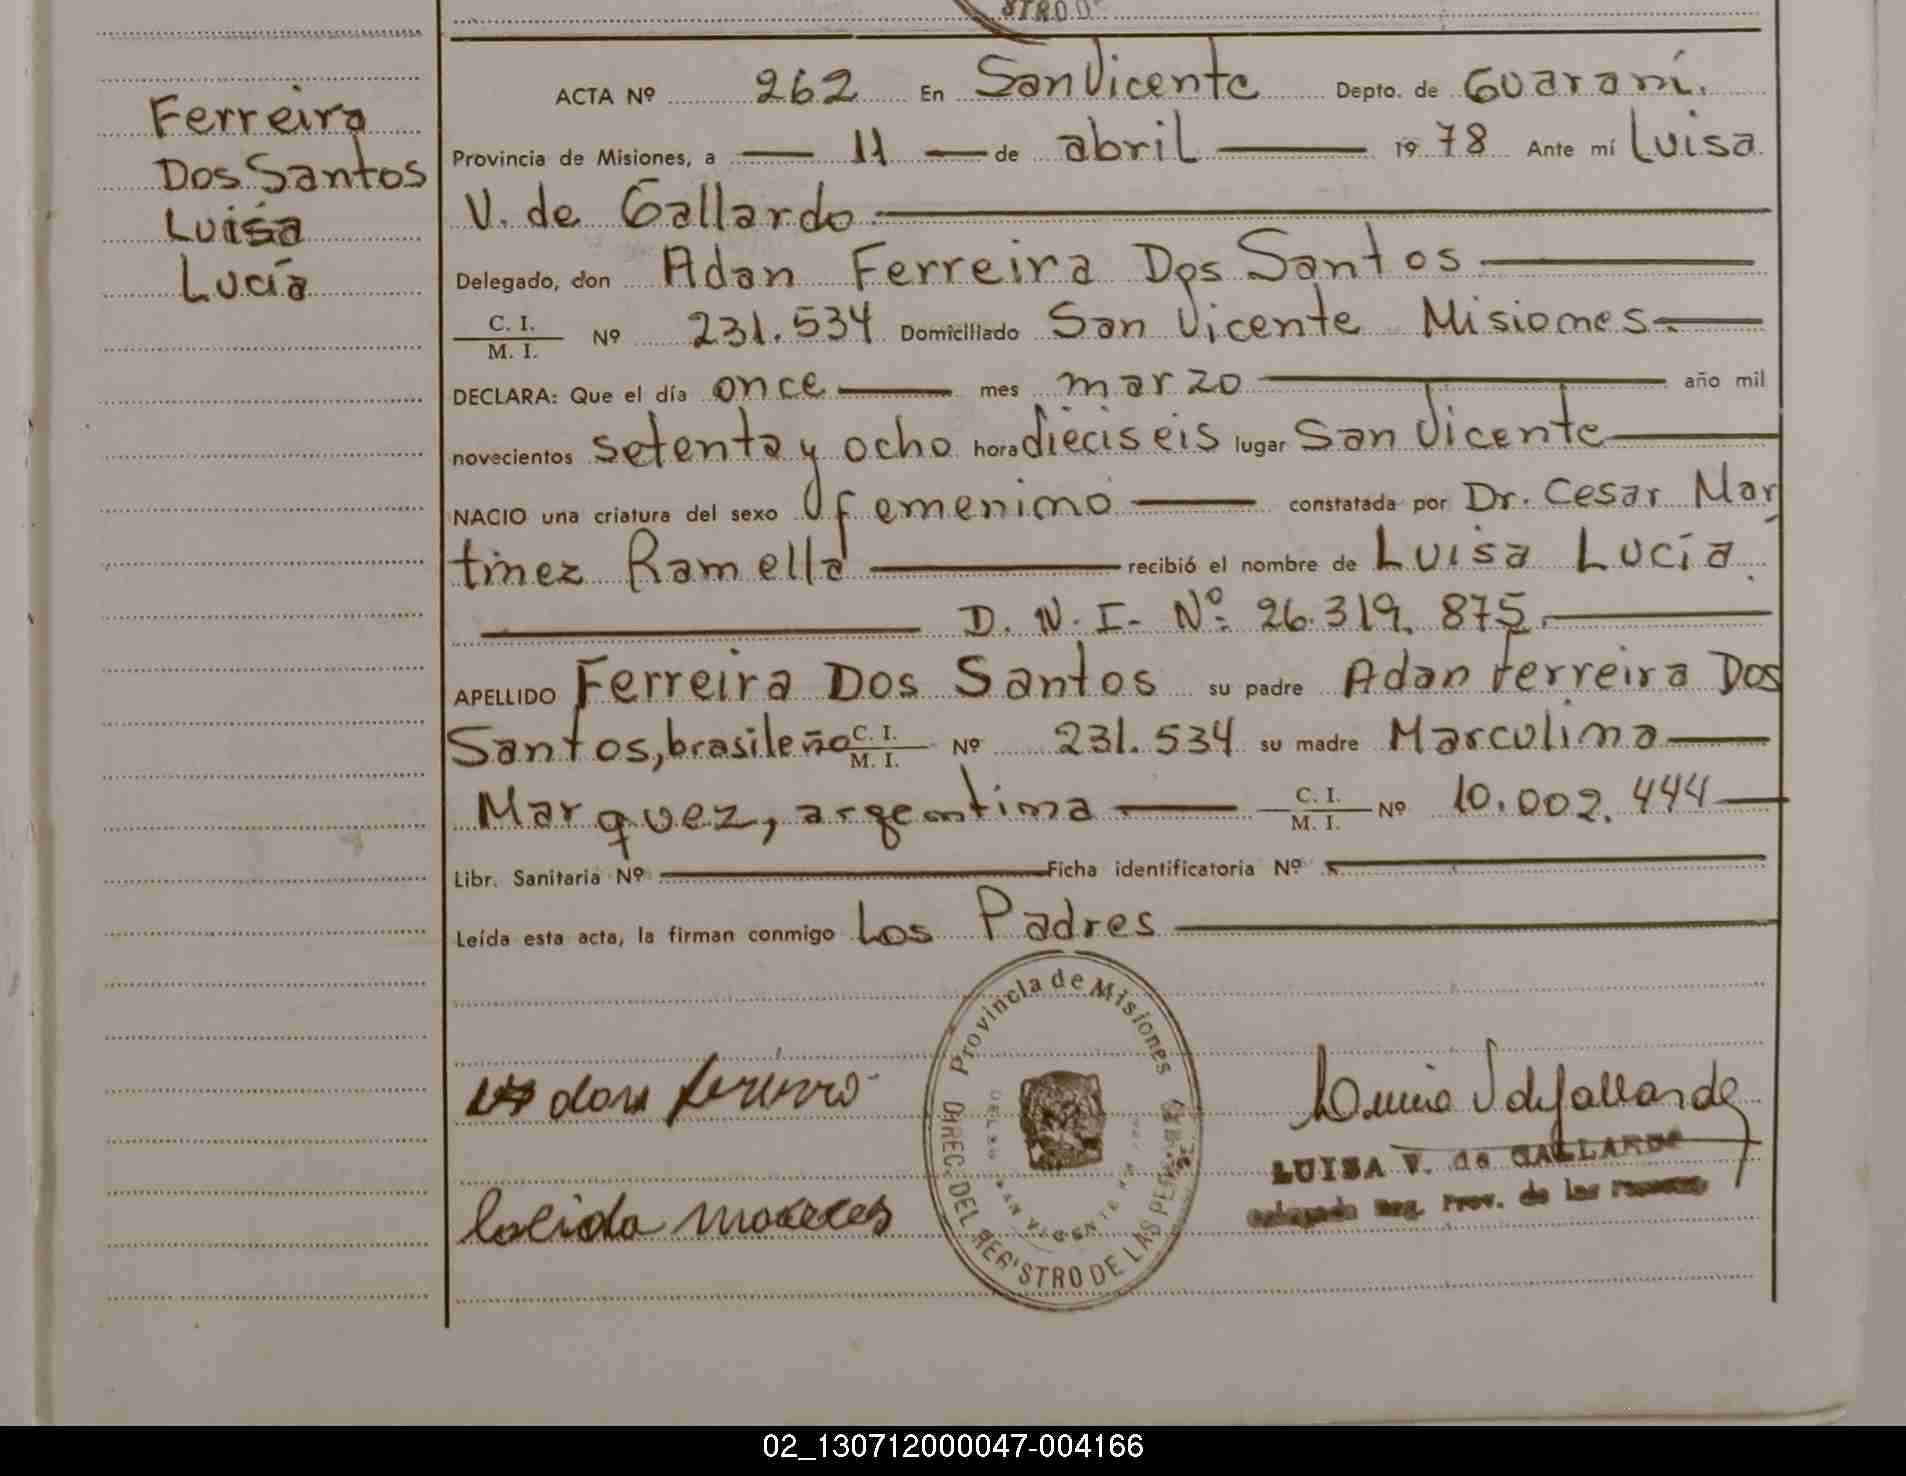 STRO D
Ferreira
Dos Santos
Luisa
Lucía
ACTA Nº 262 En San Vicente Depto. de Guaraní.
Provincia de Misiones, a 11 de abril 1978 Ante mí Luisa
V. de Gallardo
Delegado, don Adan Ferreira Dos Santos
C. I.
M. I. Nº 231.534 Domiciliado San Vicente Misiones
DECLARA: Que el día once mes marzo año mil
novecientos setenta y ocho hora dieciseis lugar San Vicente
NACIO una criatura del sexo femenino constatada por Dr. Cesar Mar
tinez Ramella recibió el nombre de Luisa Lucía
D. N. I. Nº: 26.319.875
APELLIDO Ferreira Dos Santos su padre Adan Ferreira Dos
Santos, brasileño C. I. M. I. Nº 231.534 su madre Marculina
Marquez, argentina C. I. M. I. Nº 10.002.444
Libr. Sanitaria Nº Ficha identificatoria Nº
Leída esta acta, la firman conmigo Los Padres
Provincia de Misiones
DIREC. DEL REGISTRO DE LAS PER
SAN VICENTE
LUISA V. de GALLARDO
Reg. Prov. de las
02_130712000047-004166